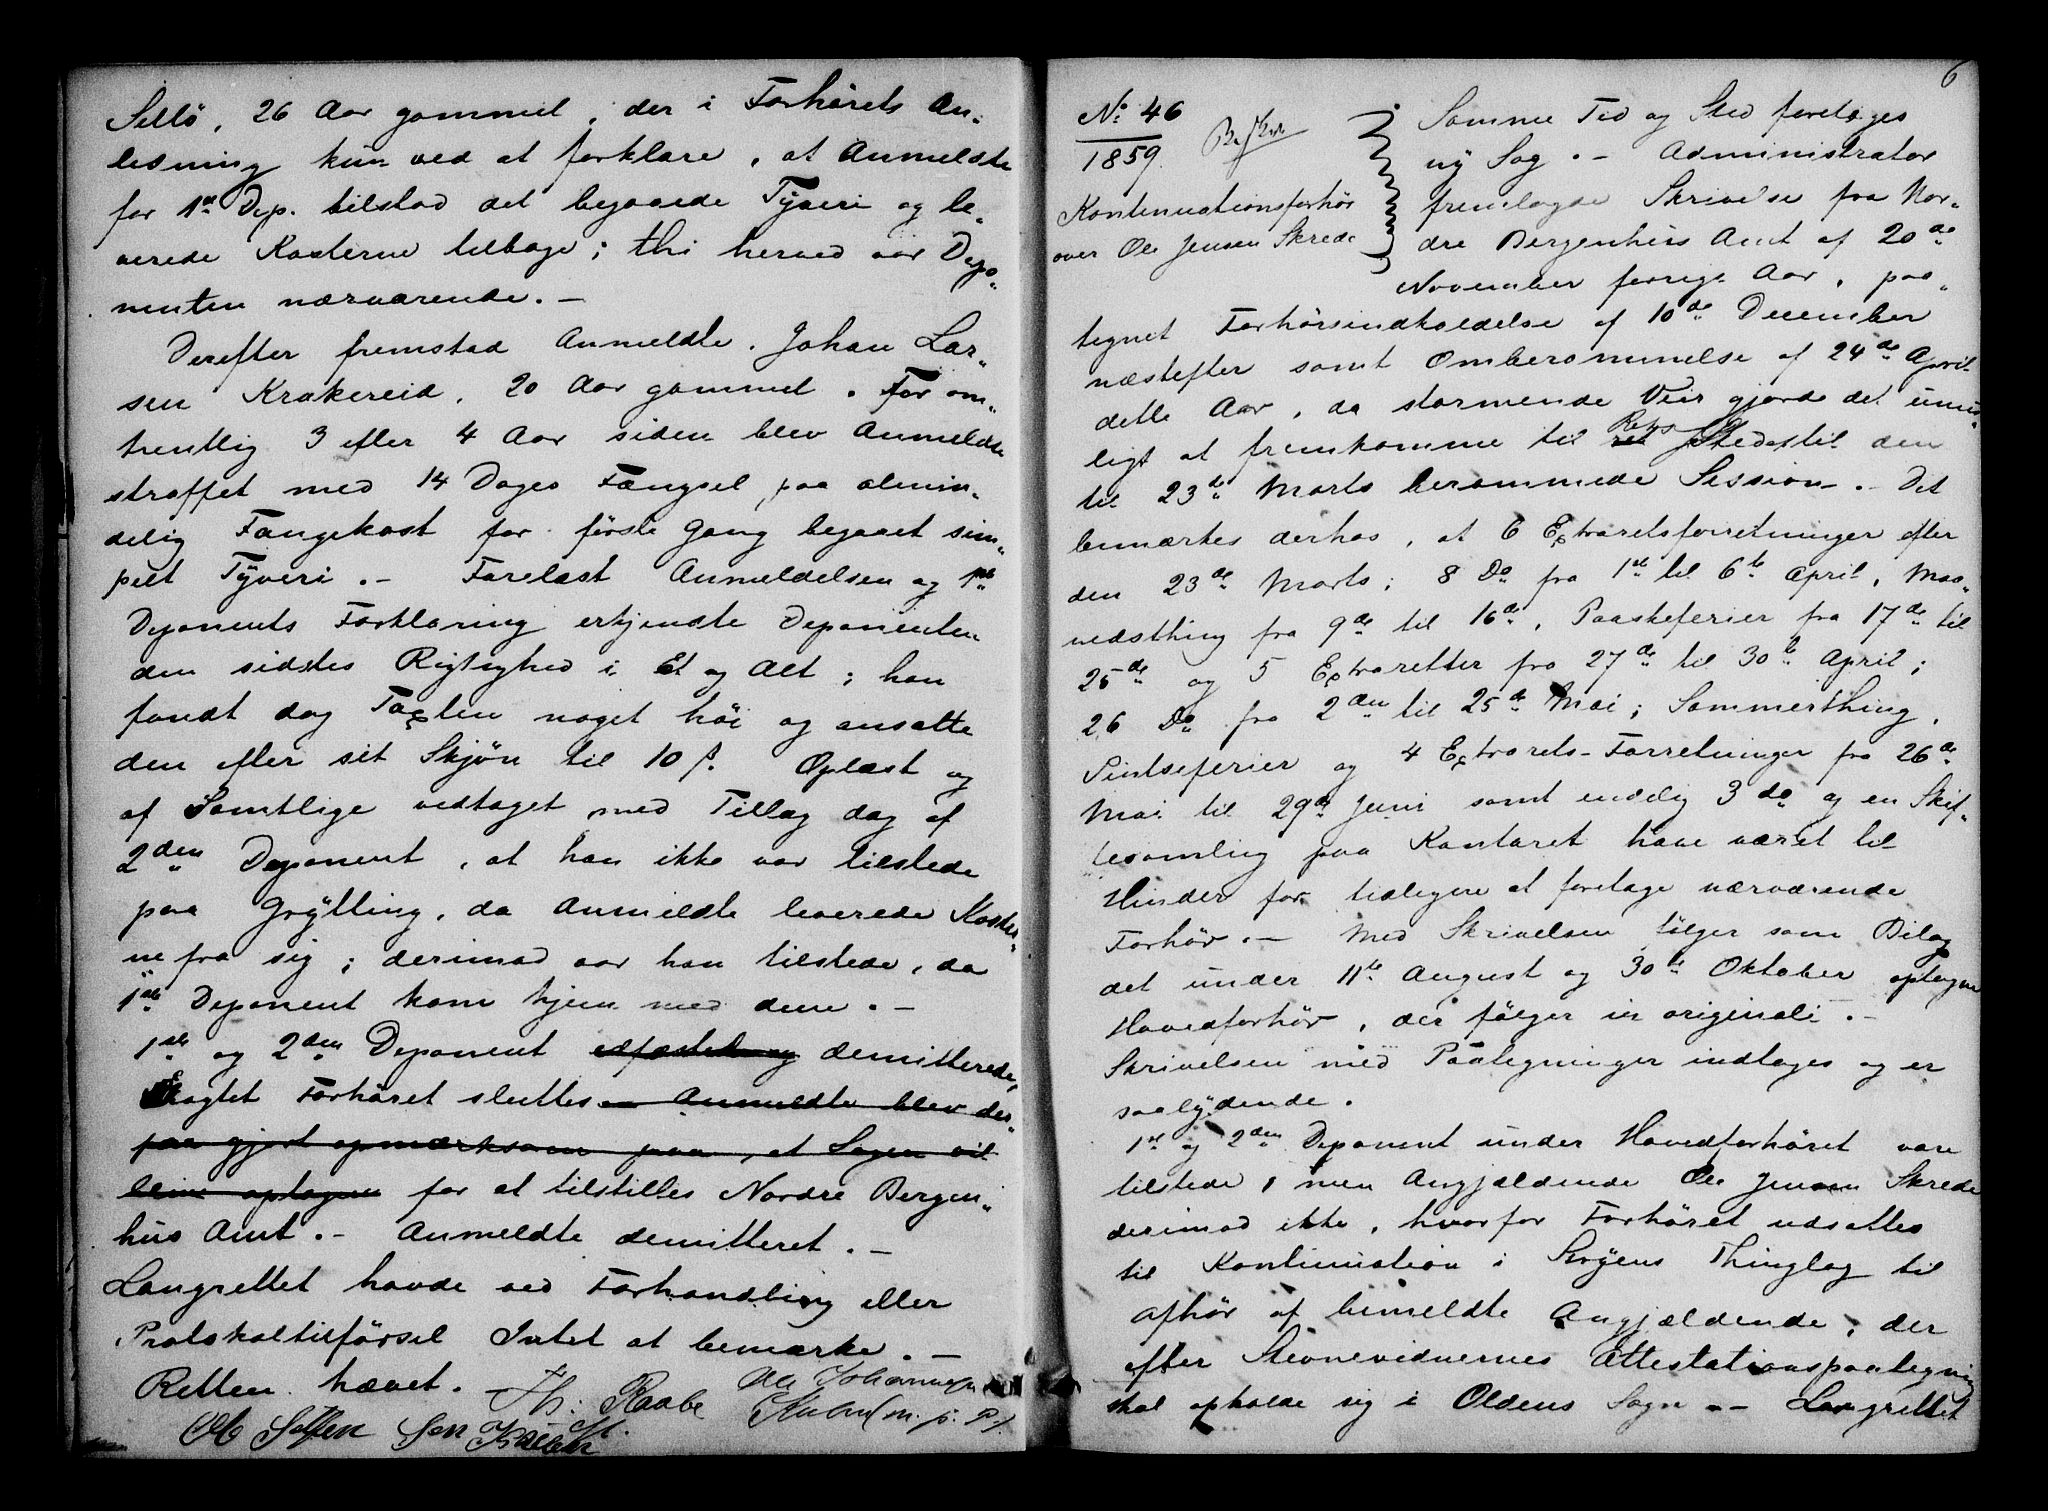 Sellö, 26 Aar gammel, der i Forhörets An-
ledning kun ved at forklare, at Anmeldte
for 1ste Dep. tilstod det begaaede Tyveri og le-
verede Kosterne tilbage; thi herved var Depo-
nenten nærværende. —
Derefter fremstod Anmeldte, Johan Lar-
sen Krakereid, 20 Aar gammel. For om-
trentlig 3 eller 4 Aar siden blev Anmeldte
straffet med 14 Dages Fængsel paa almin-
delig Fangekost for förste Gang begaaet sim-
pelt Tyveri. — Forelæst Anmeldelsen og 1ste
Deponents Forklaring erkjendte Deponenten
den sidstes Rigtighed i Et og Alt; han
fandt dog Taxten noget höi og ansatte
den efter sit Skjön til 10 ß. Oplæst og
af Samtlige vedtaget med Tillæg dog af
2den Deponent, at han ikke var tilstede
paa Grytting, da Anmeldte leverede Koster-
ne fra sig; derimod var han tilstede, da
1ste Deponent kom hjem med dem. —
1ste og 2den Deponent edfæstet og demitterede,
Extagtet Forhöret sluttes — Anmeldte blev der-
paa gjort opmærksom paa, at Sagen vil
blive optagen for at tilstilles Nordre Bergen-
hus Amt. — Anmeldte demitteret. —
Laugrettet havde ved Forhandling eller
Protokoltilförsel Intet at bemærke. —
Retten hævet. Th: Raabe Ole Johannesen
m. p. P.
6
No 46
1859.
Kontinuationsforhör
over Ole Jensen Skrede
Samme Tid og Sted foretoges
ny Sag. — Administrator
fremlagde Skrivelse fra Nor-
dre Bergenhus Amt af 20de
November forrige Aar, paa-
tegnet Forhörsindkaldelse af 10de December
næstefter samt Omberammelse af 24de April
dette Aar, da stormende Veir gjorde det umu-
ligt at fremkomme til Rets Stedet til den
til 23de Marts berammede Session. — Det
bemærkes derhos, at 6 Extraretsforretninger efter
den 23de Marts; 8 Do fra 1ste til 6te April, Maa-
nedsthing fra 9de til 16de, Paaskeferier fra 17de til
25de og 5 Extraretter fra 27de til 30te April;
26 Do fra 2den til 25de Mai; Sommerthing,
Pintseferier og 4 Extrarets-Forretninger fra 26de
Mai til 29de Juni samt endelig 3 do og en Skif-
tesamling paa Kontoret have været til
Hinder for tidligere at foretage nærværende
Forhör. — Med Skrivelsen fölger som Bilag
det under 11te August og 30te Oktober optagne
Hovedforhör, der fölger in originali. —
Skrivelsen med Paategninger indtages og er
saalydende.
1ste og 2den Deponent under Hovedforhöret vare
tilstede, men Angjældende Ole Jensen Skrede
derimod ikke, hvorfor Forhöret udsattes
til Kontinuation i Stryens Thinglag til
Afhör af bemeldte Angjældende, der
efter Stevnevidnernes Attestationspaategning
skal opholde sig i Oldens Sogn. — Laugrettet